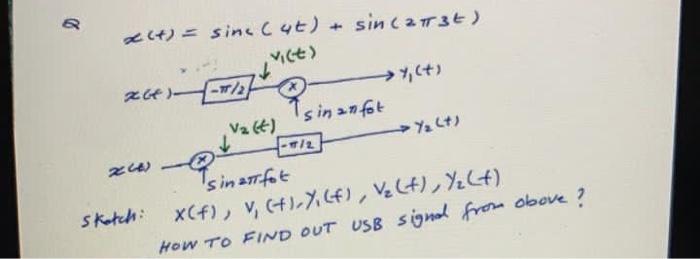 Q
x(t) = sinc(4t) + sin(2π3t)
v₁(t)
x(t) -π/2 x y₁(t)
sin2πfot
v₂(t) -π/2 y₂(t)
x(t) x
sin2πfot
Sketch: X(f), V₁(f), Y₁(f), V₂(f), Y₂(f)
HOW TO FIND OUT USB signal from above?